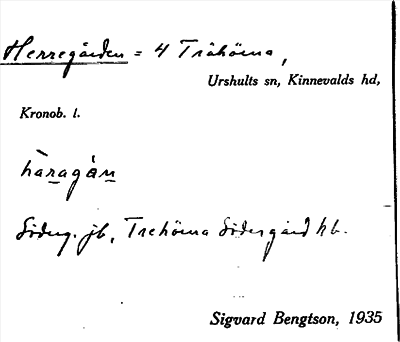 Herregården = 4 Tråhörna,
Urshults sn, Kinnevalds hd,
Kronob. l.
hàragån
Söderg. jb, Trehörna Södergård hb.
Sigvard Bengtson, 1935